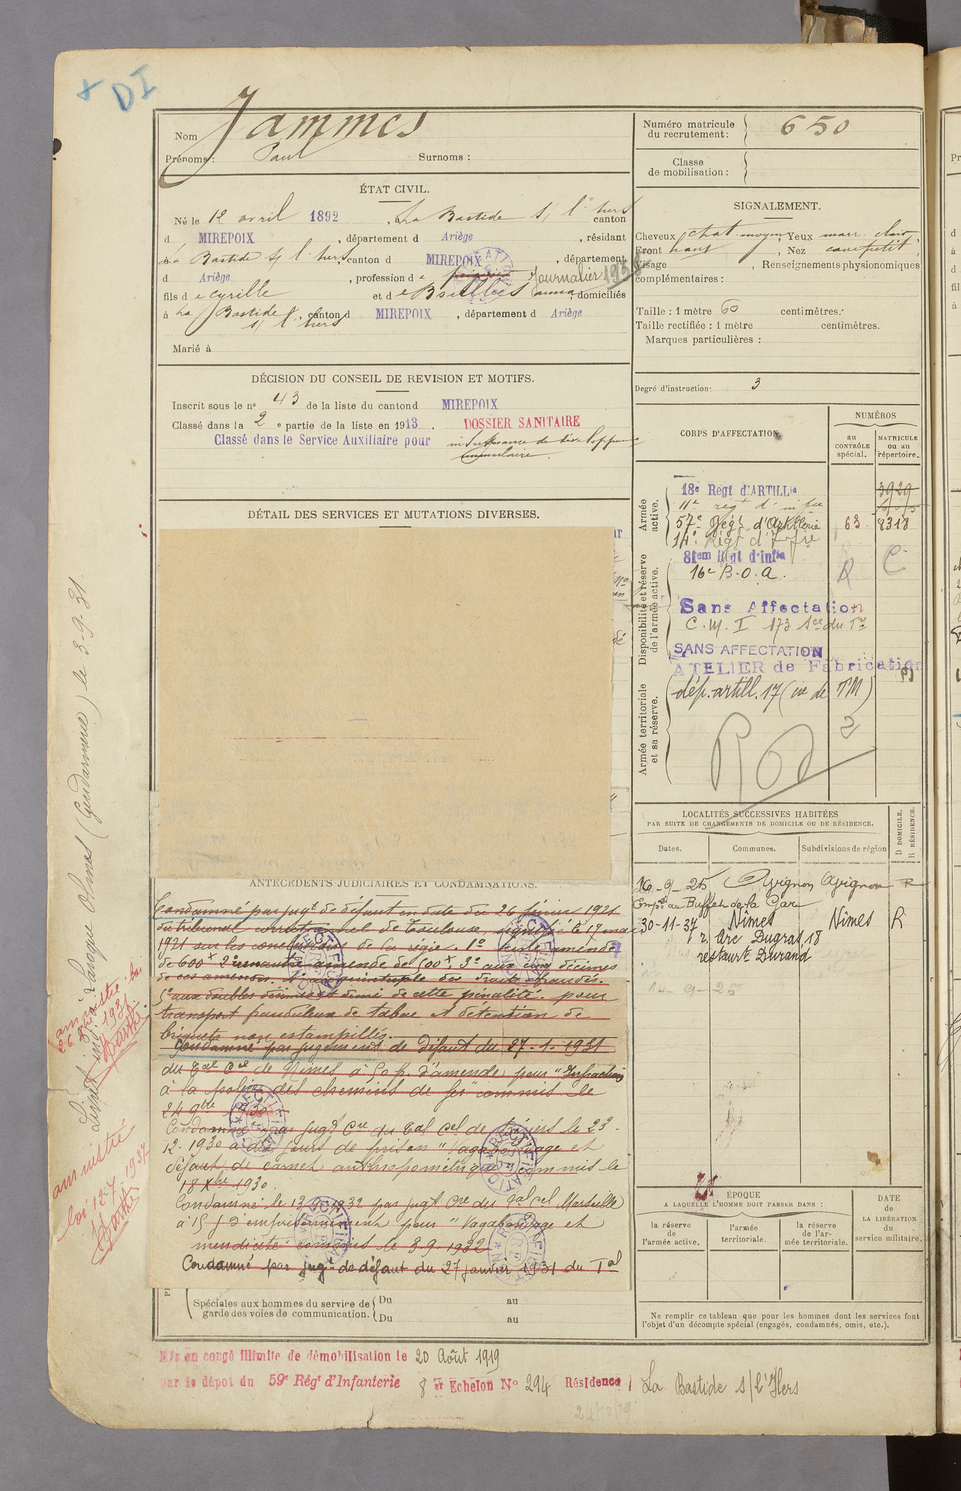 DI
Nom Jammes
Prénoms : Paul Surnoms :
ÉTAT CIVIL.
Né le 12 avril 1892, à La Bastide s/ l'hers canton
d MIREPOIX, département d Ariège, résidant
à La Bastide s/ l'hers, canton d MIREPOIX, département
d Ariège, profession de Journalier
fils de Cyrille et de Anna, domiciliés
à La Bastide s/ l'hers, canton d MIREPOIX, département d Ariège
Marié à
DÉCISION DU CONSEIL DE REVISION ET MOTIFS.
Inscrit sous le n° 43 de la liste du canton d MIREPOIX
Classé dans la 2e partie de la liste en 1913. DOSSIER SANITAIRE
Classé dans le Service Auxiliaire pour insuffisance de développement
musculaire.
DÉTAIL DES SERVICES ET MUTATIONS DIVERSES.
ANTÉCÉDENTS JUDICIAIRES ET CONDAMNATIONS.
Condamné par jugt de défaut en date du 26 février 1921
du tribunal correctionnel de Toulouse, signifié le 17 mai
1921 sur les conclusions de la régie. 1° amende
de 600x 2° amende de 500x, 3° aux cinq décimes
de ces amendes, 4° au quintuple des droits fraudés.
5° aux doubles décimes et demi de cette pénalité. pour
transport frauduleux de tabac et détention de
briquets non estampillés.
Condamné par jugement de défaut du 27-1-1931
du Tal Cel de Nîmes à 50 f. d'amende pour "Infraction
à la police des chemins de fer" commis le
Condamné par jugt Cre du Tal Cel de le 23-
12-1930 à jours de prison "Vagabondage et
défaut de carnet anthropométrique" commis le
18 Xbre 1930.
Condamné le 13-9-1932 par jugt Cre du Tal Cel Marseille
à 15 j d'emprisonnement pour "Vagabondage et
mendicité" commis le 3-9-1932
Condamné par jugt de défaut du 27 janvier 1931 du Tal
Spéciales aux hommes du service de garde des voies de communication. Du au
Du au
Mis en congé illimité de démobilisation le 20 Août 1919
par le dépôt du 59e Régt d'Infanterie 8 er Echelon N° 294 Résidence La Bastide s/ l'Hers
Numéro matricule du recrutement : 650
Classe de mobilisation :
SIGNALEMENT.
Cheveux chat. moyen, Yeux marr. clair
Front haut, Nez cave petit,
Visage, Renseignements physionomiques
complémentaires :
Taille : 1 mètre 60 centimètres.
Taille rectifiée : 1 mètre centimètres.
Marques particulières :
Degré d'instruction : 3
CORPS D'AFFECTATION.
NUMÉROS
au CONTRÔLE spécial.
MATRICULE ou au répertoire.
Armée active.
Disponibilité et réserve de l'armée active.
Armée territoriale et sa réserve.
18e Régt d'ARTILLie 3929
11e régt d'infie
57e Régt d'Artillerie 63 8318
14e Régt d'Infie
81em Régt d'infie
16e B.O.A. R C
Sans Affectation
C.M.I 173
SANS AFFECTATION
ATELIER de Fabrication
dép. artill. 17
LOCALITÉS SUCCESSIVES HABITÉES
PAR SUITE DE CHANGEMENTS DE DOMICILE OU DE RÉSIDENCE.
Dates. Communes. Subdivisions de région
D DOMICILE. R RÉSIDENCE.
16-9-25 Avignon Avignon R
au Buffet de la Gare
30-11-37 Nîmes Nîmes R
r. Arc Dugras 18
restaurt Durand
ÉPOQUE
A LAQUELLE L'HOMME DOIT PASSER DANS :
la réserve de l'armée active.
l'armée territoriale.
la réserve de l'armée territoriale.
DATE de LA LIBÉRATION du service militaire.
Ne remplir ce tableau que pour les hommes dont les services font
l'objet d'un décompte spécial (engagés, condamnés, omis, etc.).
Laroque Olmes (Gendarmerie) le 3-9-31
amnistié
loi 12-7-1937